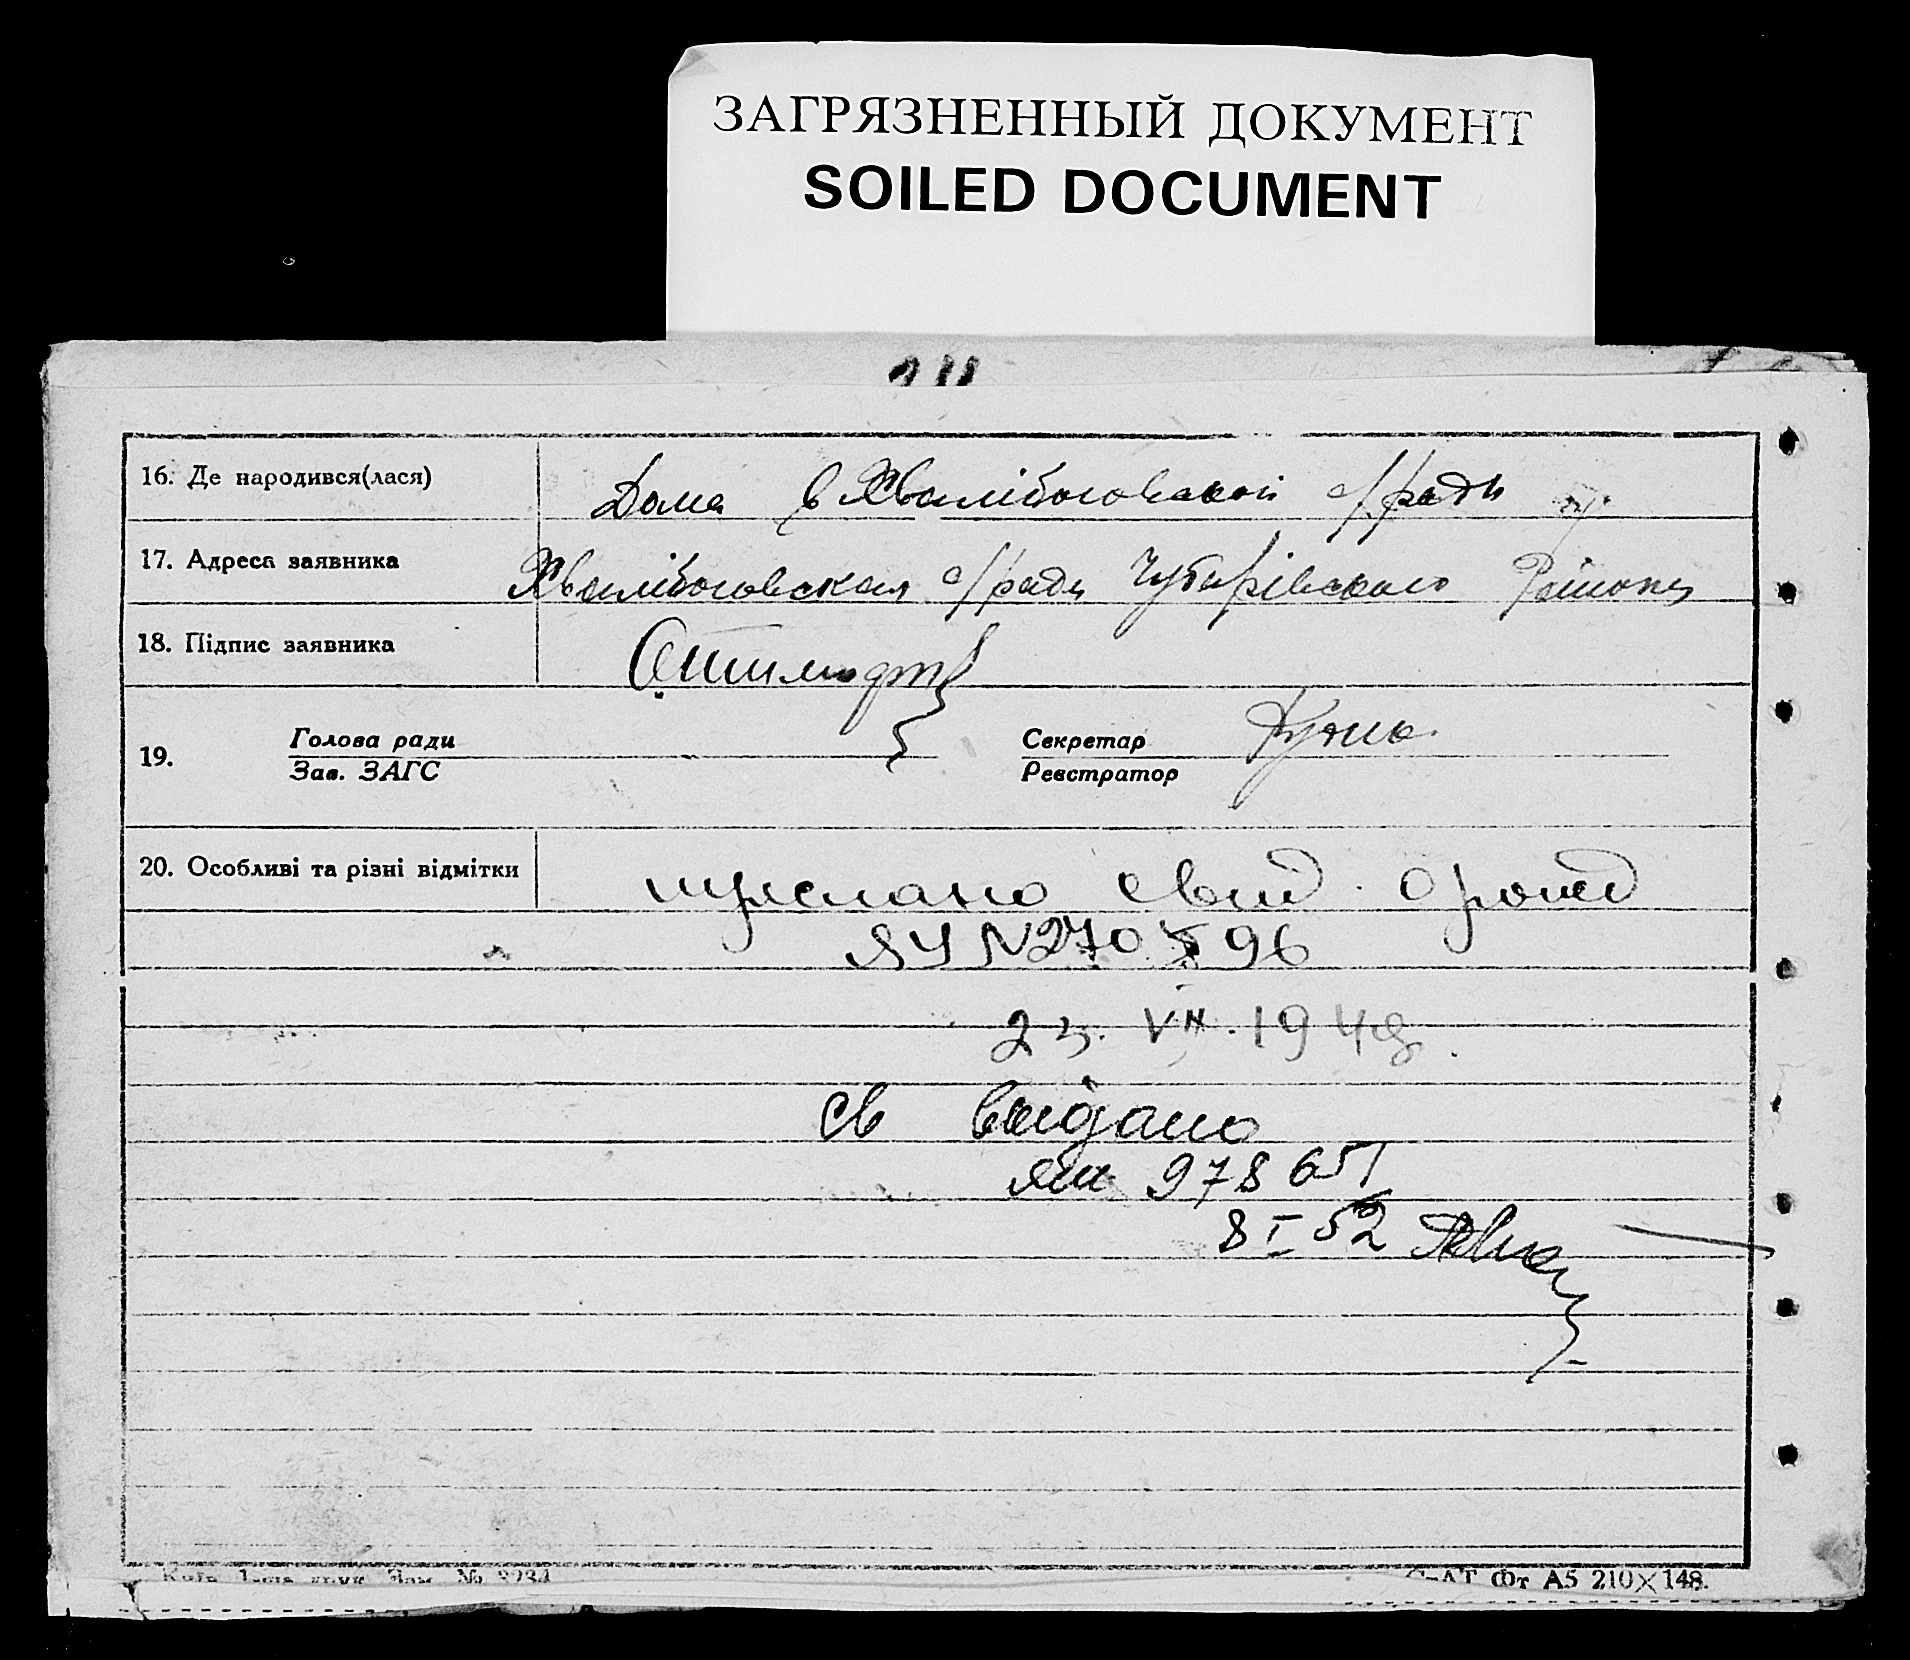 ЗАГРЯЗНЕННЫЙ ДОКУМЕНТ
SOILED DOCUMENT
16. Де народився(лася) Дома в Хвалібоговской с/ради
17. Адреса заявника Хвалібоговская с/рада Чубарівского Района
18. Підпис заявника
19. Голова ради Секретар
Зав. ЗАГС Реєстратор
20. Особливі та різні відмітки выслано свид о рожд
ЯУ N270 96
VII 194
св выдано
978651
8 I 52
Фт А5 210×148.